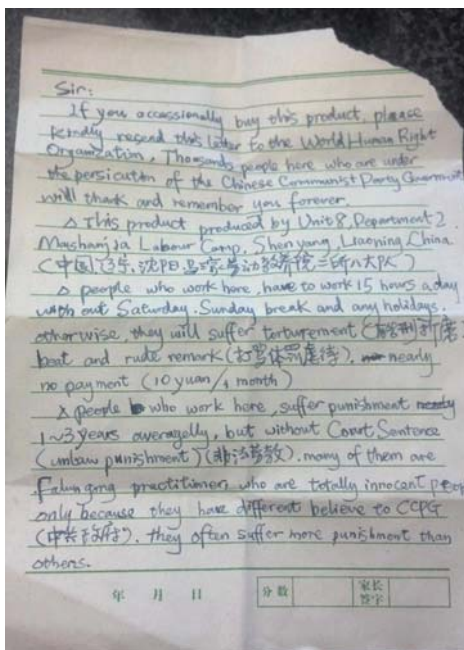 Sir:
If you occassionally buy this product, please
kindly resend this letter to the World Human Right
Organization. Thousands people here who are under
the persicution of the Chinese Communist Party Government
will thank and remember you forever.
This product produced by Unit 8, Department 2,
Mashanjia Labour Camp, Shenyang, Liaoning, China.
(中国,辽宁,沈阳,马三家劳动教养院二所八大队)
people who work here, have to work 15 hours a day
with out Saturday, Sunday break and any holidays,
otherwise, they will suffer torturement (折磨),
beat and rude remark (打骂体罚虐待), nearly
no payment (10 yuan/1 month)
people who work here, suffer punishment
1~3 years averagelly, but without Court Sentence
(unlaw punishment) (非法劳教). many of them are
Falun gong practitioner, who are totally innocent people
only because they have different believe to CCPG
(中共政府), they often suffer more punishment than
others.
年 月 日 分数 家长签字